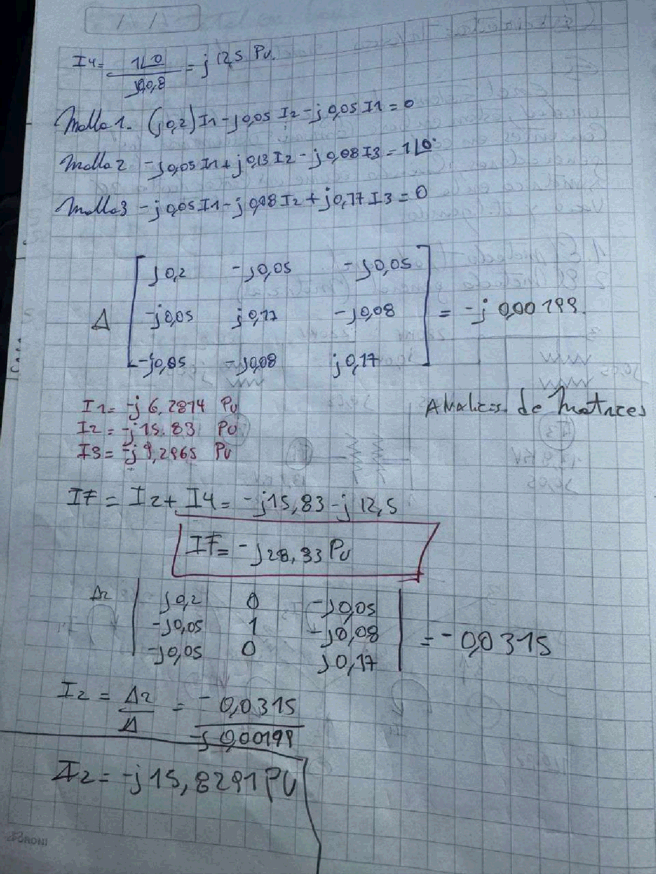 I4= 1∠0 / j0,8 = j 12,5 Pu.
Malla 1. (j0,2)I1-j0,05 I2-j0,05 I1=0
Malla 2 -j0,05 I1+j0,13 I2-j0,08 I3=1∠0°
Malla 3 -j0,05 I1-j0,08 I2+j0,17 I3=0
j0,2 -j0,05 -j0,05
Δ -j0,05 j0,17 -j0,08 = -j 0,00199.
-j0,05 -j0,08 j0,17
I1= -j 6,2814 Pu
I2= -j15,83 Pu
I3= -j9,2965 Pu
Analices de Matrices
IF = I2+ I4= -j15,83-j 12,5
IF= -j28,33 Pu
Δ2 j0,2 0 -j0,05
-j0,05 1 -j0,08 = -0,0315
-j0,05 0 j0,17
I2 = Δ2/Δ = -0,0315 / -j 0,00199
I2= -j15,8291 PU